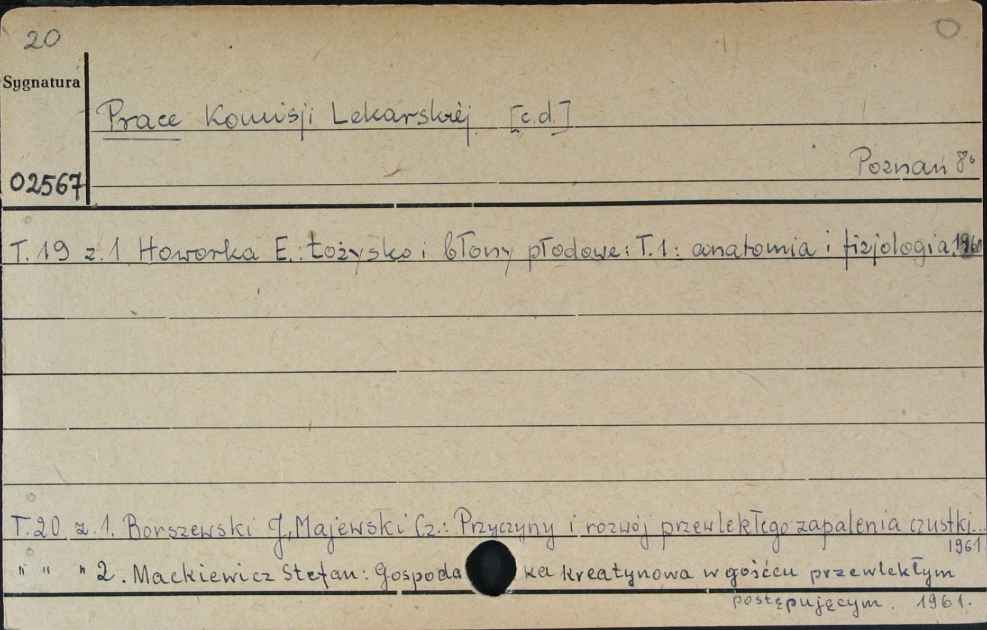 20
Sygnatura
Prace Komisji Lekarskiej [c.d.]
02567
Poznań 8°
T. 19 z. 1 Howorka E.: Łożysko i błony płodowe: T. 1: anatomia i fizjologia. 1961
T. 20 z. 1. Borszewski J., Majewski Cz.: Przyczyny i rozwój przewlekłego zapalenia czustki...
1961
" " " 2. Mackiewicz Stefan: Gospoda ka kreatynowa w gośćcu przewlekłym
postępującym. 1961.